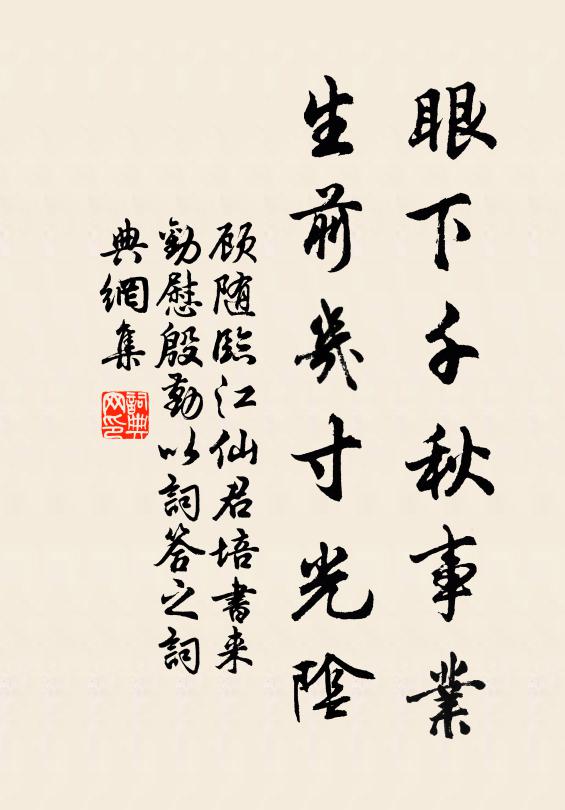 眼下千秋事業
生前幾寸光陰
顾随臨江仙君培書来
勸慰殷勤以詞答之詞
典網集
詞典網印